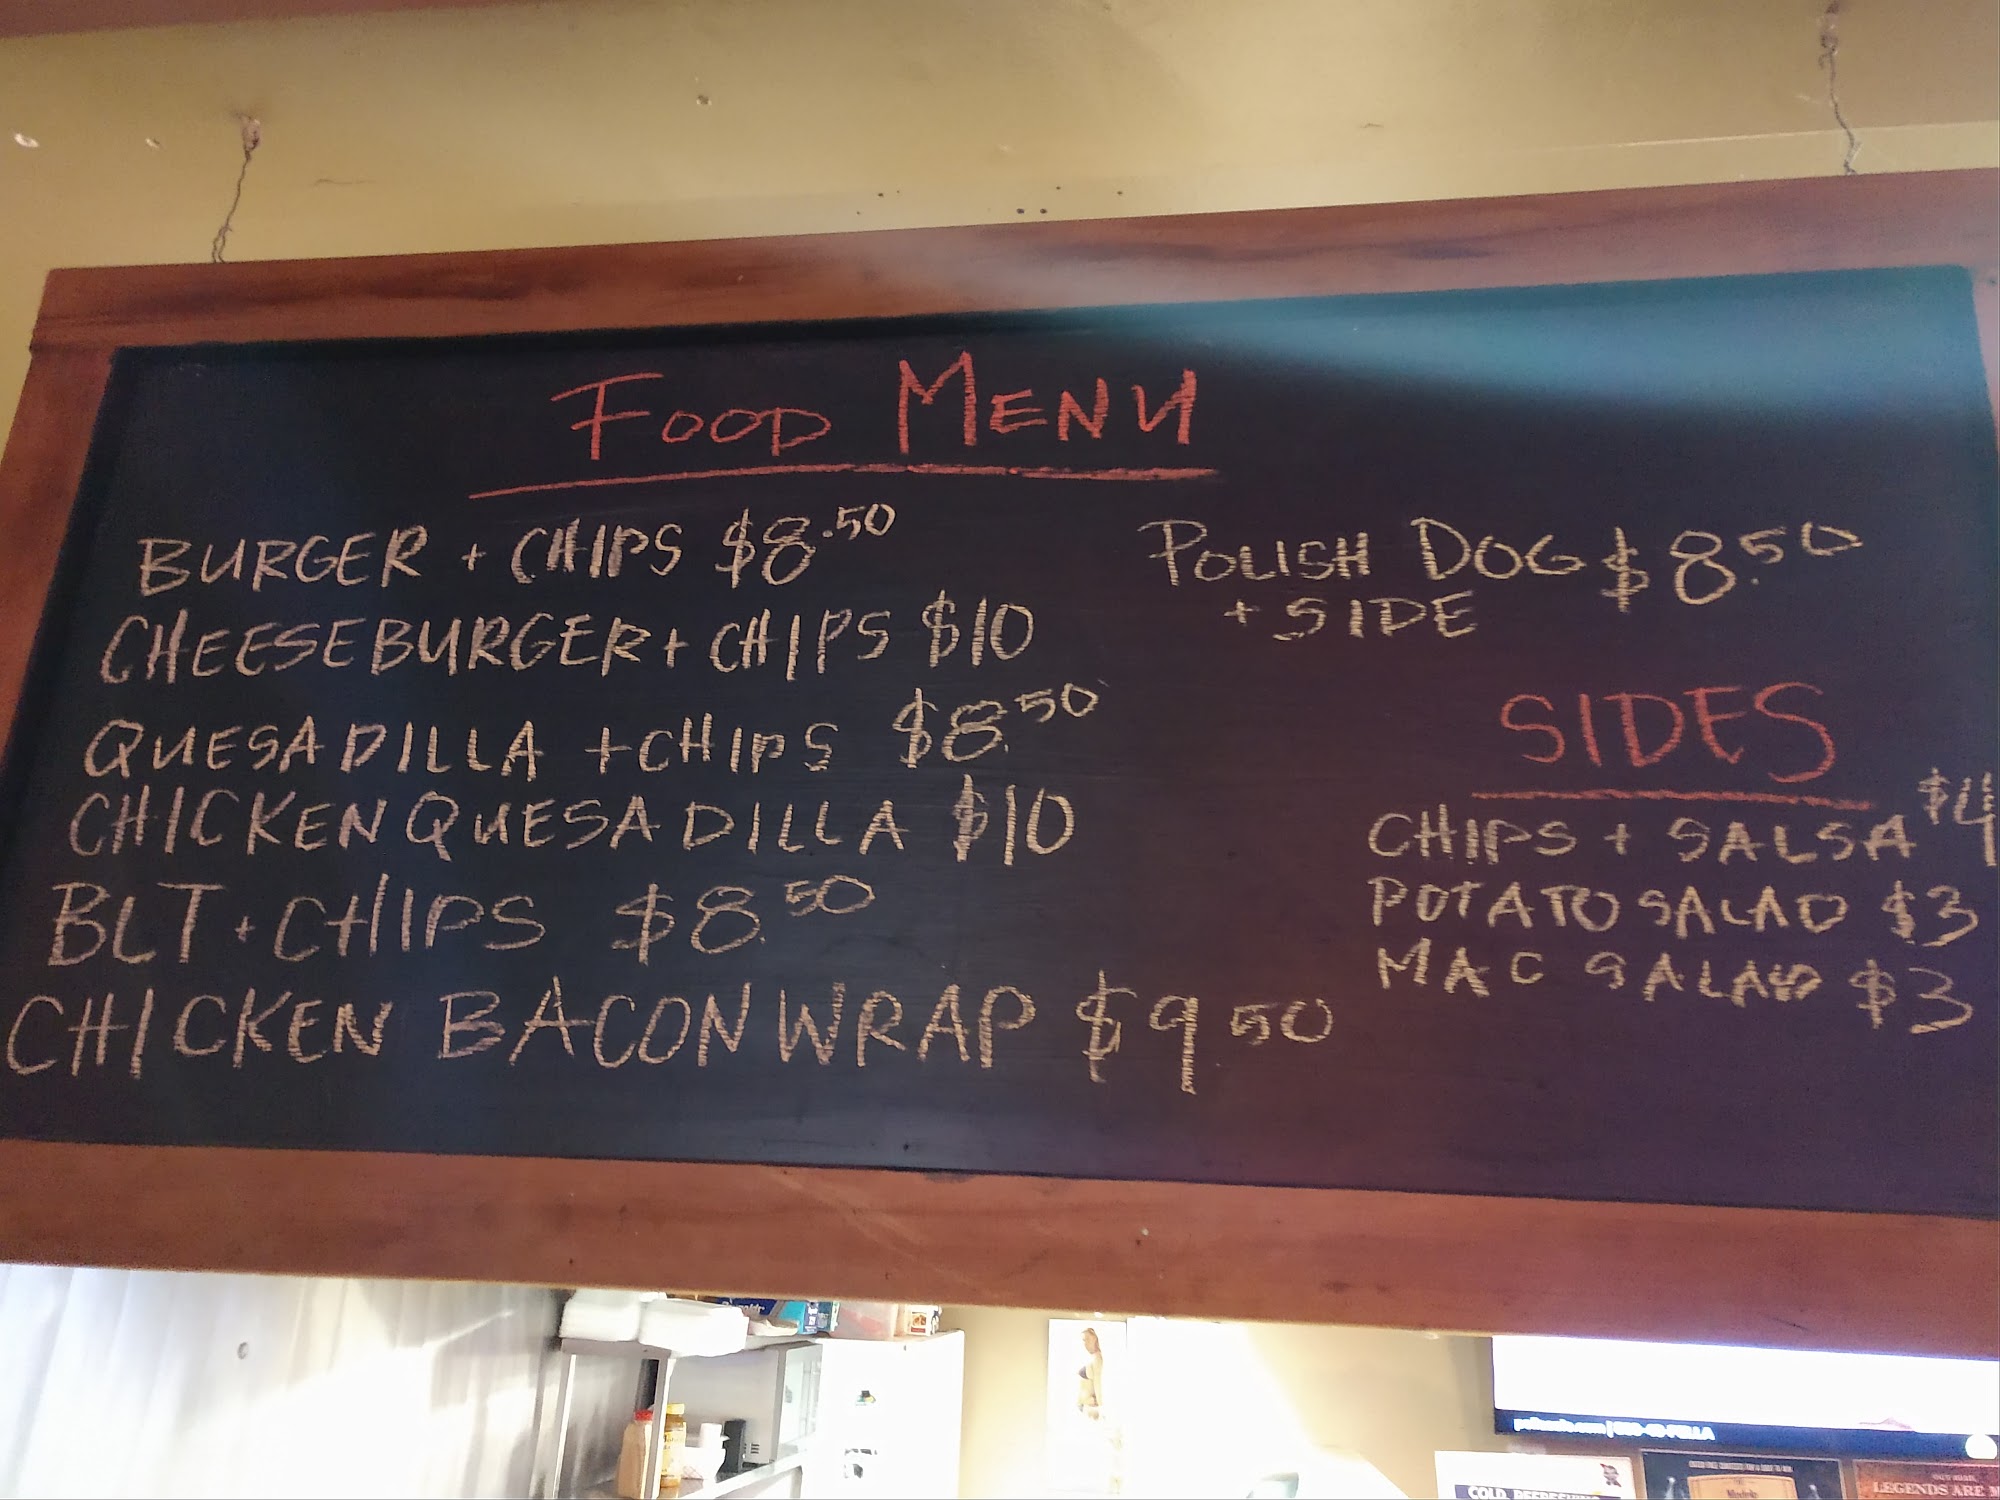 FOOD MENU
BURGER + CHIPS $8.50
CHEESEBURGER + CHIPS $10
QUESADILLA + CHIPS $8.50
CHICKEN QUESADILLA $10
BLT + CHIPS $8.50
CHICKEN BACON WRAP $9 50
POLISH DOG $8.50
+ SIDE
SIDES
CHIPS + SALSA $4
POTATO SALAD $3
MAC SALAD $3
COLD, REFRESHING
LEGENDS ARE